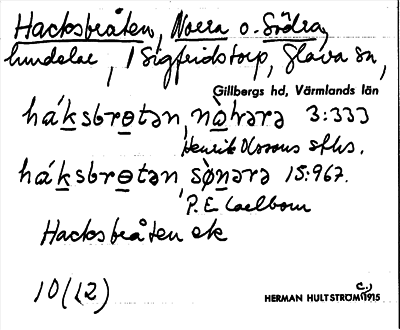 Hacksbråten, Norra o. Södra,
hmdelar, i Sigfridstorp, Glava sn,
Gillbergs hd, Värmlands län
háksbrotən, nòhərə 3:333
Henrik Olssons sths.
háksbrotən sǿnərə 15:967.
P. E. Carlbom
Hacksbråten ek
10(12)
HERMAN HULTSTRÖM (C.) 1915